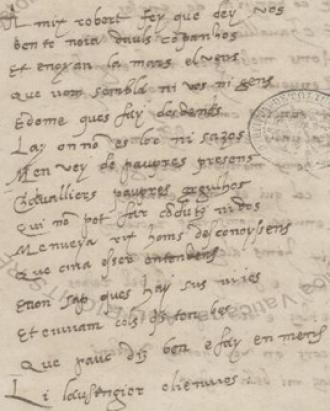 Amix robert fey que dey vos
ben te noia dauls cōpanhos
Et enoyan la mars el vens
que nom sembla ni vos ni gens
E dome ques fay desdenhs
Lay on nō es loc ni sazos
Men vey de paupres presens
Cavalliers paupres ergulhos
Qui nō pot far cōdutz ni dos
Menueya rix homs desconoyssens
Que cuia esser entendens
Enon sap ques hay sus
Et enuian cels
Que pauc diz ben e fay en mens
Li lausengier